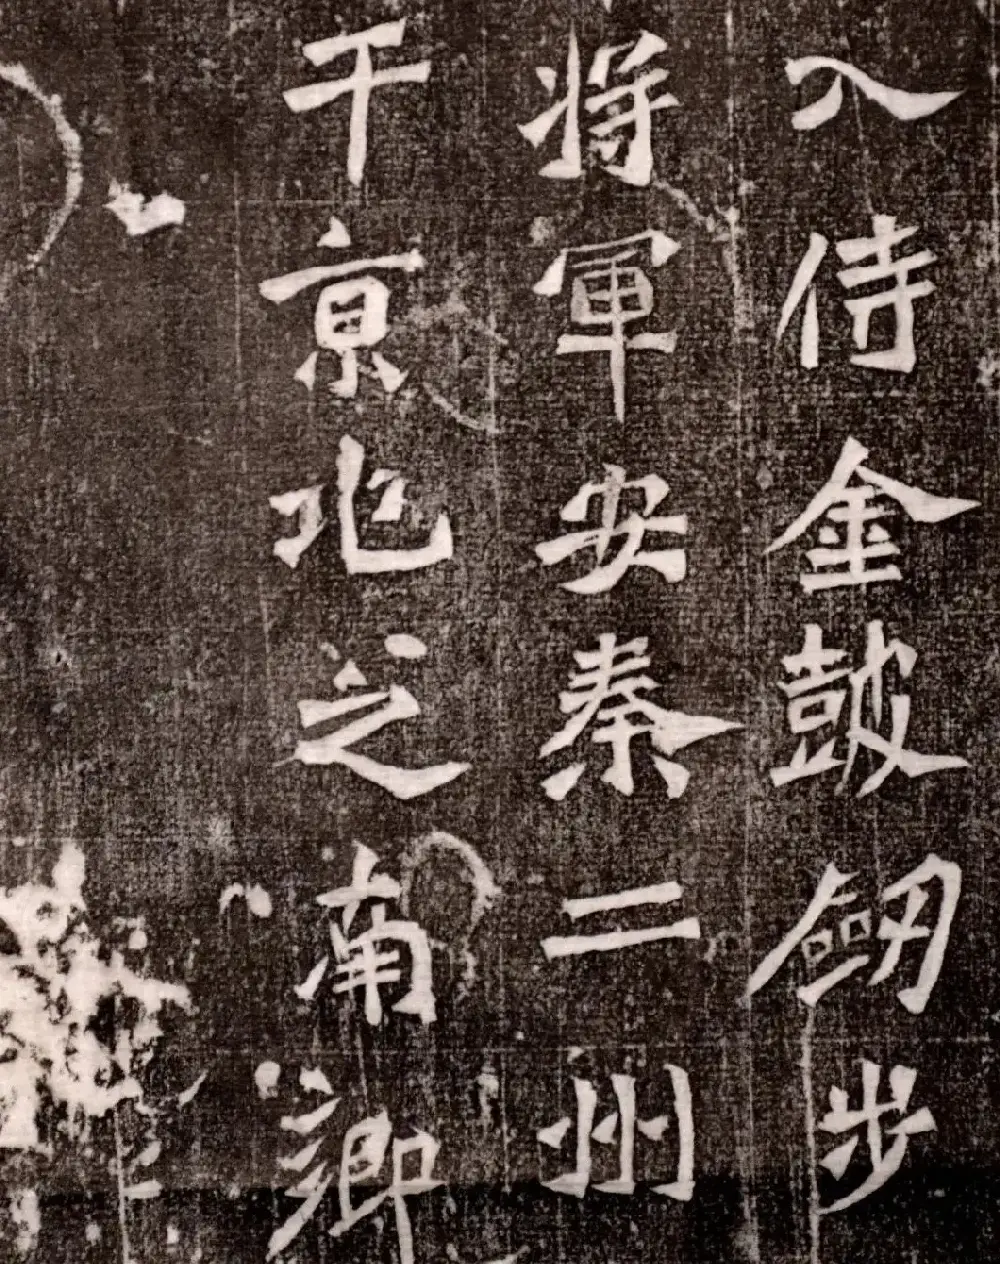 入侍金皷劒步
将軍安秦二州
于亰兆之南鄉